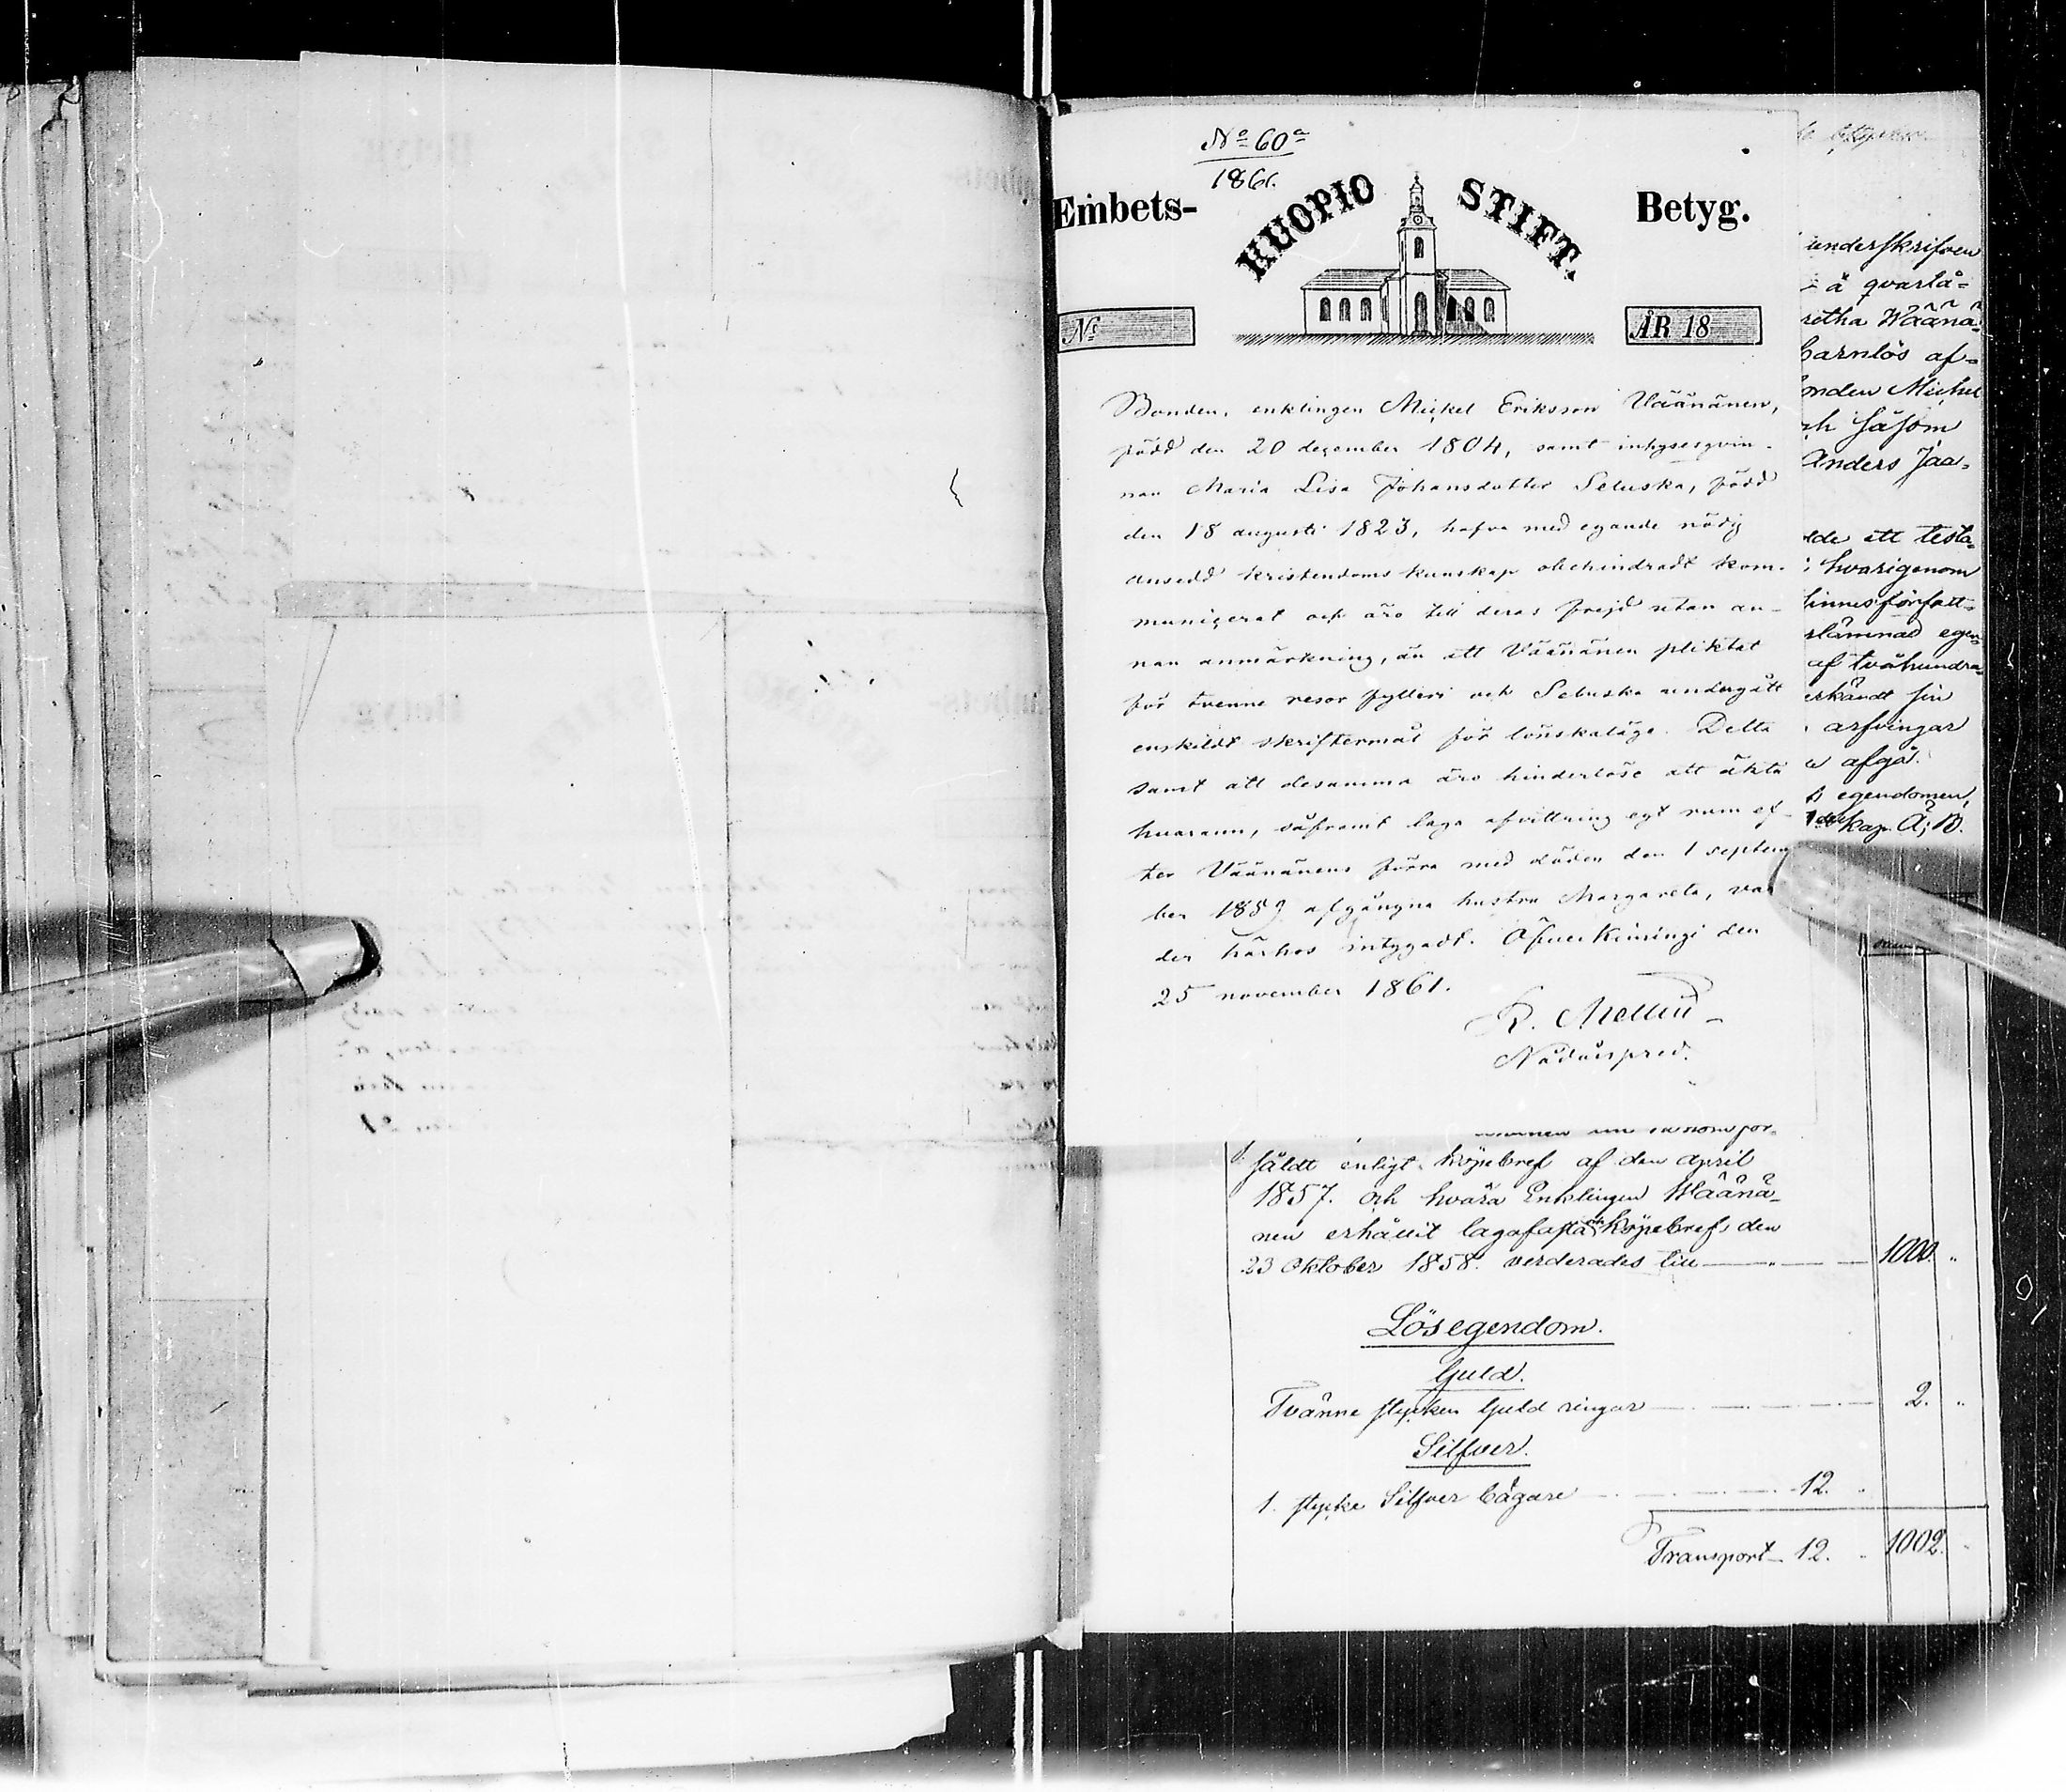 No 60a
1861.
Embets- KUOPIO STIFT. Betyg.
No ÅR 18
Bonden, enklingen Mickel Eriksson Väänänen,
född den 20 december 1804, samt inhysesqvin-
nan Maria Lisa Johansdotter Seluska, född
den 18 augusti 1823, hafva med egande nödig
ansedd kristendoms kunskap obehindradt kom-
municerat och äro till deras frejd utan an-
nan anmärkning, än att Väänänen pliktat
för tvenne resor fylleri och Seluska undergått
enskildt skriftermål för lönskaläge. Detta
samt att desamma äro hinderlöse att äkta
hvarann, såframt laga afvittning egt rum ef-
ter Väänänens förra med döden den 1 septem
ber 1859 afgångna hustru Margareta, var
der härhos intygadt. Öfverkiminge den
25 november 1861.
R. Mellin
Nådårspred.
underskrifven
å qvarlå-
retha Wäänä-
barnlös af-
onden Michel
ch såsom
Anders Jaa-
lde ett testa-
hvarigenom
sinnesförfatt-
rlämnad egen-
af tvåhundra-
erkändt sin
arfvingar
afgå.
egendomen,
kap. Ä: B.
såldt enligt köpebref af den april
1857. och hvara Enklingen Wäänä-
nen erhållit lagafasta köpebrefs den
23 Oktober 1858. värderades till 1000. "
Lösegendom.
Guld.
Tvänne stycken Guld ringar 2. "
Silfver.
1. stycke Silfver bägare 12. "
Transport 12. " 1002. "